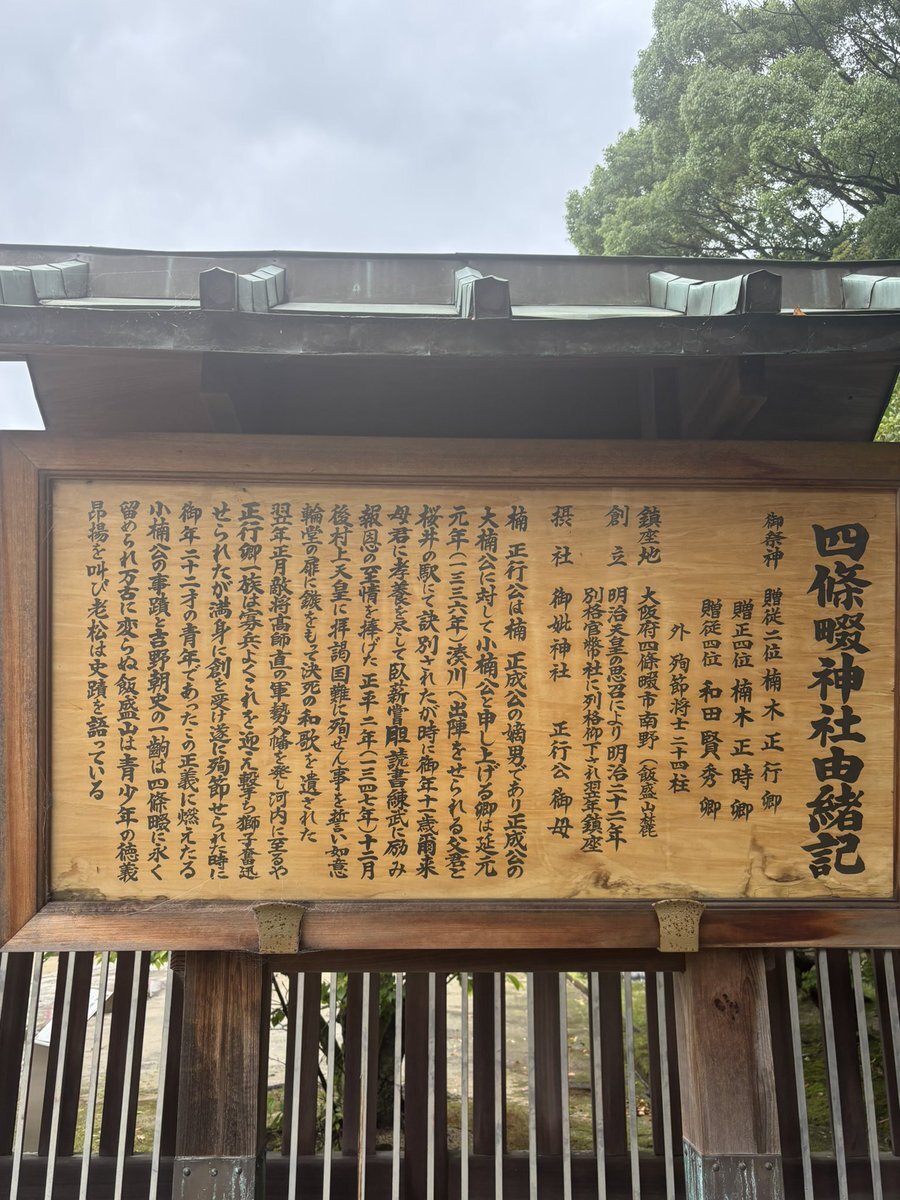 四條畷神社由緒記
御祭神　贈従二位楠木正行卿
贈正四位　楠木正時卿
贈従四位　和田賢秀卿
外　殉節将士二十四柱
鎮座地　大阪府四條畷市南野（飯盛山麓
創立　明治天皇の思召により明治二十二年
別格官幣社に列格御下され翌年鎮座
摂社　御妣神社　正行公御母
楠　正行公は楠　正成公の嫡男であり正成公の
大楠公に対して小楠公と申し上げる卿は延元
元年（一三三六年）湊川へ出陣をせられる父君と
桜井の駅にて訣別されたが時に御年十歳爾来
母君に孝養を尽して臥薪嘗胆読書練武に励み
報恩の至情を捧げた正平二年（一三四七年）十二月
後村上天皇に拝謁国難に殉せん事を誓い如意
輪堂の扉に鏃をもって決死の和歌を遺された
翌年正月敵将高師直の軍勢八幡を発し河内に至るや
正行卿一族は寡兵よくこれを迎え撃ち獅子奮迅
せられたが満身に創を受け遂に殉節せられた時に
御年二十二才の青年であったこの正義に燃えたる
小楠公の事蹟と吉野朝史の一齣は四條畷に永く
留められ万古に変らぬ飯盛山は青少年の徳義
昂揚を叫び老松は史蹟を語っている